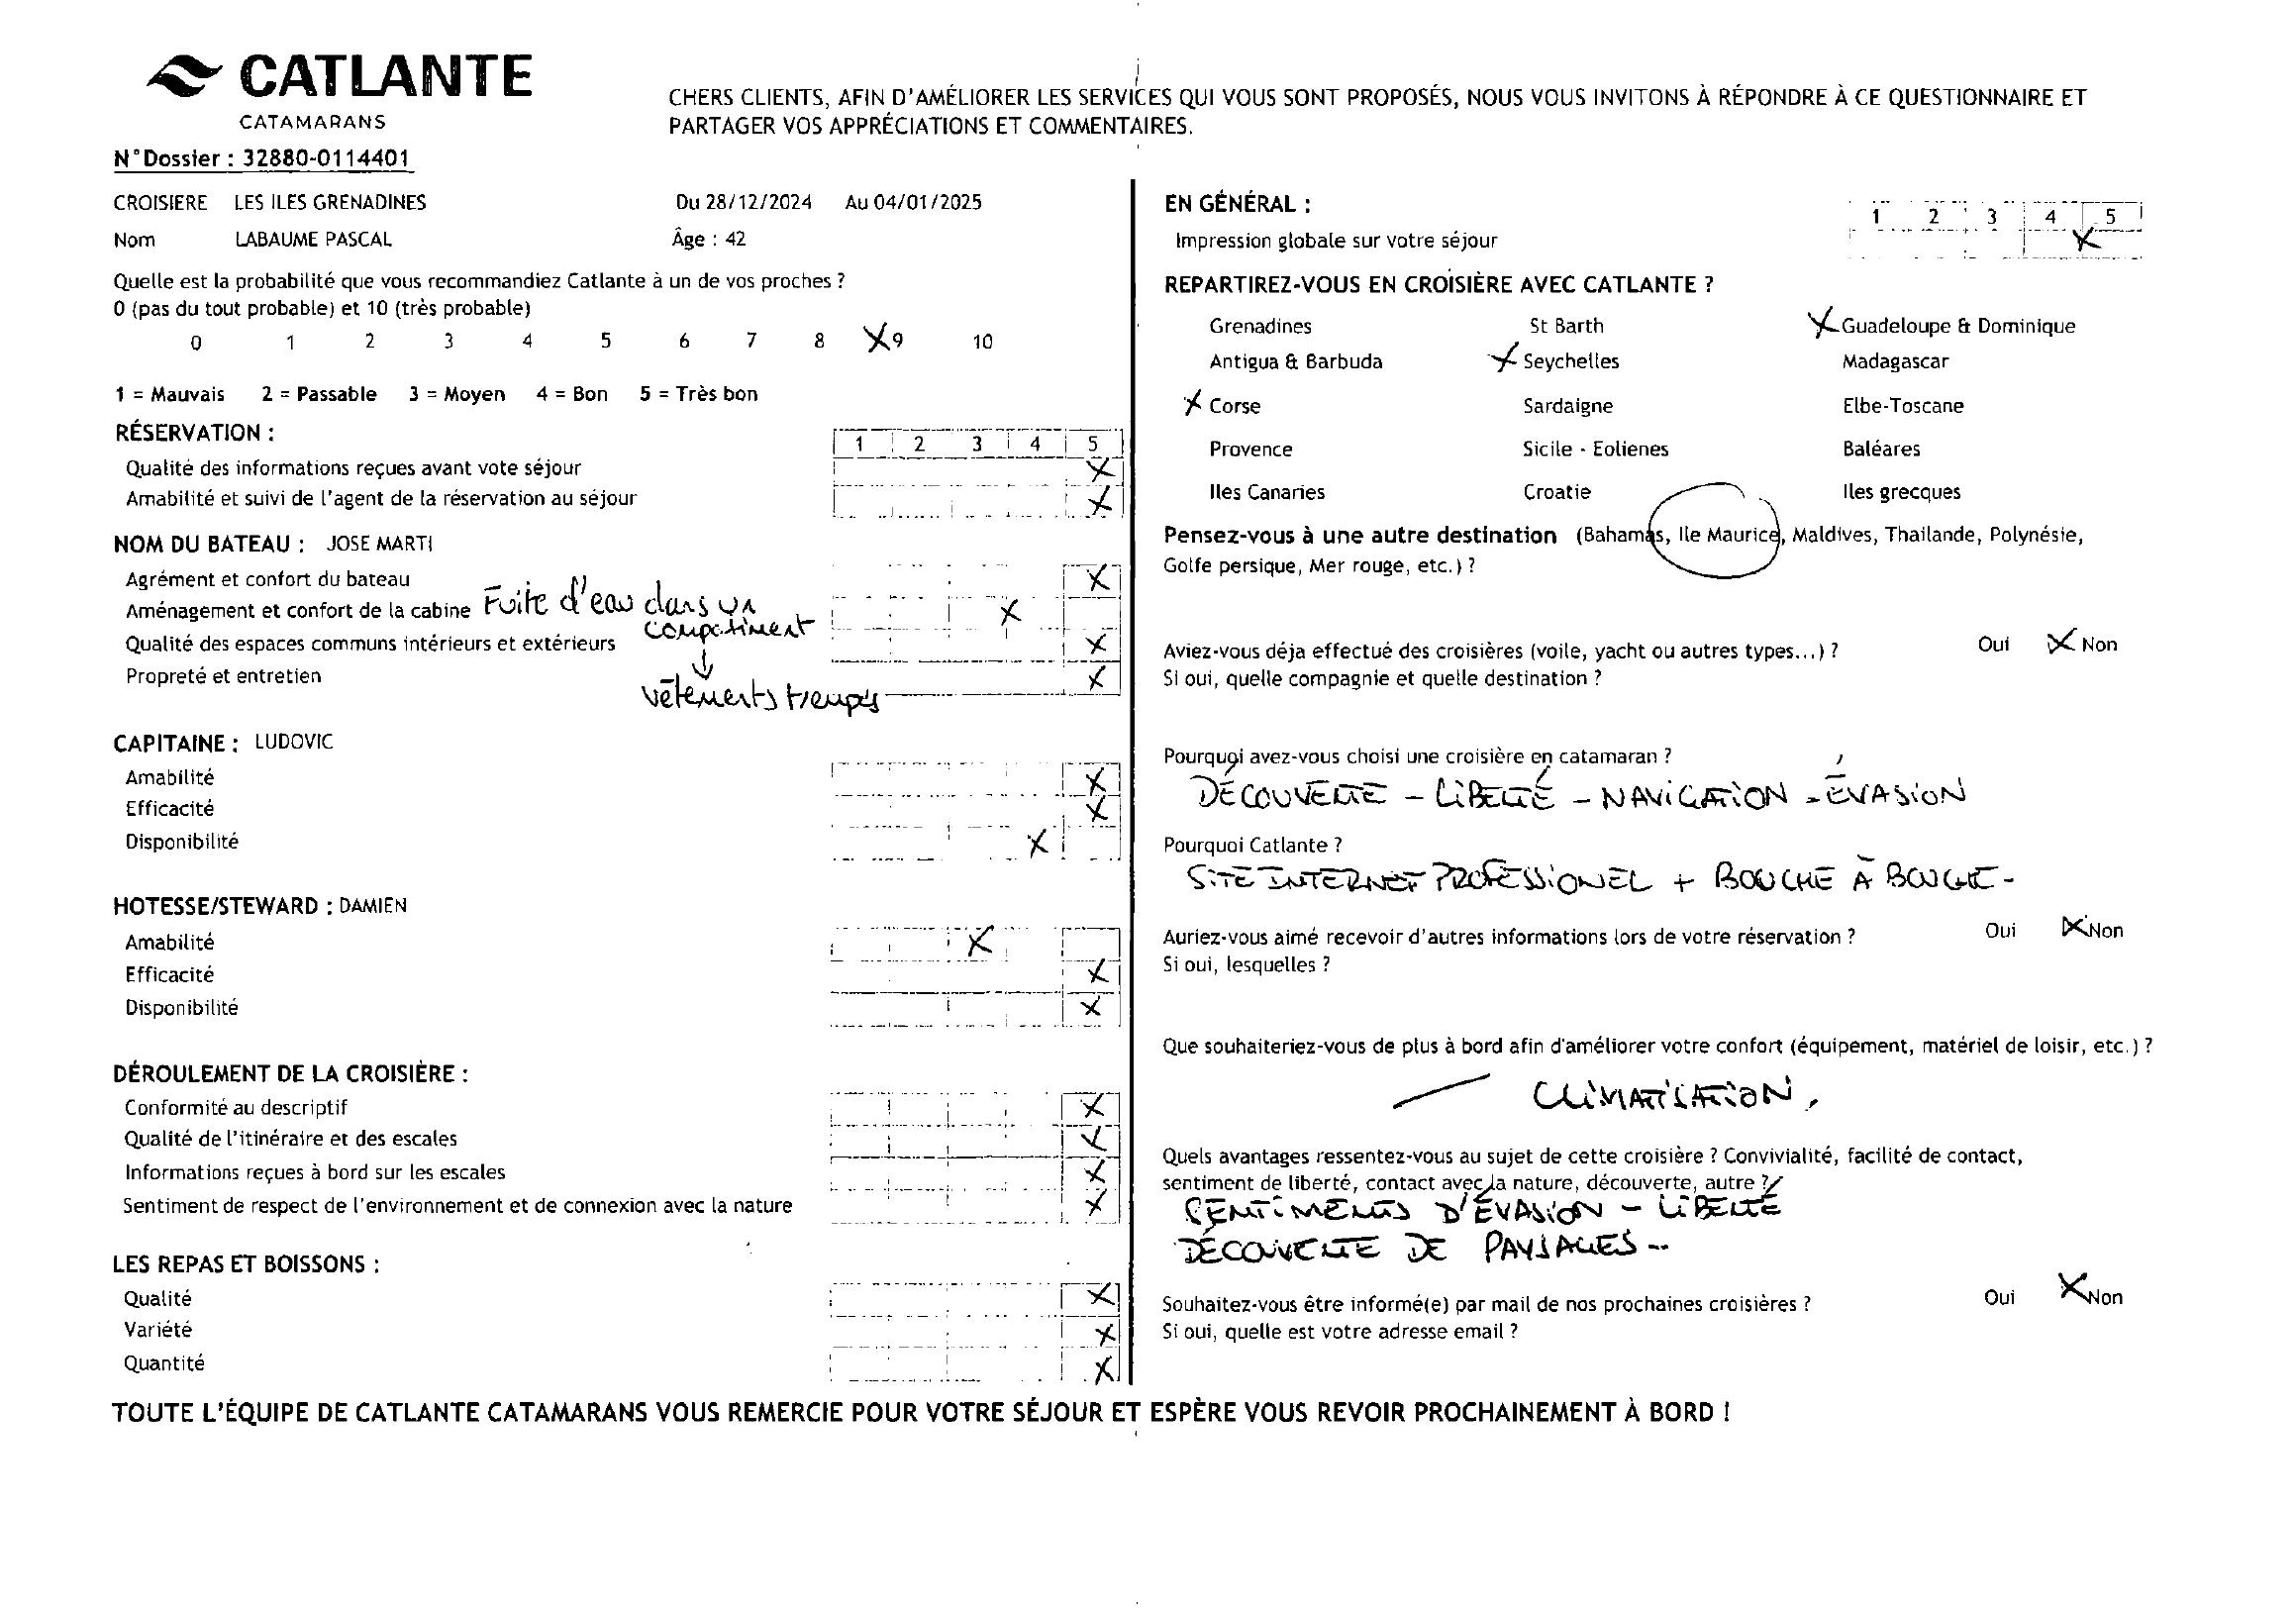 CATLANTE
CATAMARANS
CHERS CLIENTS, AFIN D'AMÉLIORER LES SERVICES QUI VOUS SONT PROPOSÉS, NOUS VOUS INVITONS À RÉPONDRE À CE QUESTIONNAIRE ET
PARTAGER VOS APPRÉCIATIONS ET COMMENTAIRES.
N°Dossier : 32880-0114401
CROISIERE LES ILES GRENADINES Du 28/12/2024 Au 04/01/2025
Nom LABAUME PASCAL Âge : 42
Quelle est la probabilité que vous recommandiez Catlante à un de vos proches ?
0 (pas du tout probable) et 10 (très probable)
0 1 2 3 4 5 6 7 8 X 9 10
1 = Mauvais 2 = Passable 3 = Moyen 4 = Bon 5 = Très bon
RÉSERVATION : 1 2 3 4 5
Qualité des informations reçues avant vote séjour X
Amabilité et suivi de l'agent de la réservation au séjour X
NOM DU BATEAU : JOSE MARTI
Agrément et confort du bateau X
Aménagement et confort de la cabine Fuite d'eau dans un X
compatiment
Qualité des espaces communs intérieurs et extérieurs X
Propreté et entretien X
↓
vêtements trempés
CAPITAINE : LUDOVIC
Amabilité X
Efficacité X
Disponibilité X
HOTESSE/STEWARD : DAMIEN
Amabilité X
Efficacité X
Disponibilité X
DÉROULEMENT DE LA CROISIÈRE :
Conformité au descriptif X
Qualité de l'itinéraire et des escales X
Informations reçues à bord sur les escales X
Sentiment de respect de l'environnement et de connexion avec la nature X
LES REPAS ET BOISSONS :
Qualité X
Variété X
Quantité X
EN GÉNÉRAL : 1 2 3 4 5
Impression globale sur votre séjour X
REPARTIREZ-VOUS EN CROISIÈRE AVEC CATLANTE ?
Grenadines St Barth X Guadeloupe & Dominique
Antigua & Barbuda X Seychelles Madagascar
X Corse Sardaigne Elbe-Toscane
Provence Sicile - Eolienes Baléares
Iles Canaries Croatie Iles grecques
Pensez-vous à une autre destination (Bahamas, Ile Maurice, Maldives, Thailande, Polynésie,
Golfe persique, Mer rouge, etc.) ?
Aviez-vous déja effectué des croisières (voile, yacht ou autres types...) ? Oui X Non
Si oui, quelle compagnie et quelle destination ?
Pourquoi avez-vous choisi une croisière en catamaran ?
DÉCOUVERTE - LIBERTÉ - NAVIGATION - ÉVASION
Pourquoi Catlante ?
SITE INTERNET PROFESSIONEL + BOUCHE À BOUCHE -
Auriez-vous aimé recevoir d'autres informations lors de votre réservation ? Oui X Non
Si oui, lesquelles ?
Que souhaiteriez-vous de plus à bord afin d'améliorer votre confort (équipement, matériel de loisir, etc.) ?
— CLIMATISATION.
Quels avantages ressentez-vous au sujet de cette croisière ? Convivialité, facilité de contact,
sentiment de liberté, contact avec la nature, découverte, autre ?
SENTIMENTS D'ÉVASION - LIBERTÉ
DÉCOUVERTE DE PAYSAGES --
Souhaitez-vous être informé(e) par mail de nos prochaines croisières ? Oui X Non
Si oui, quelle est votre adresse email ?
TOUTE L'ÉQUIPE DE CATLANTE CATAMARANS VOUS REMERCIE POUR VOTRE SÉJOUR ET ESPÈRE VOUS REVOIR PROCHAINEMENT À BORD !